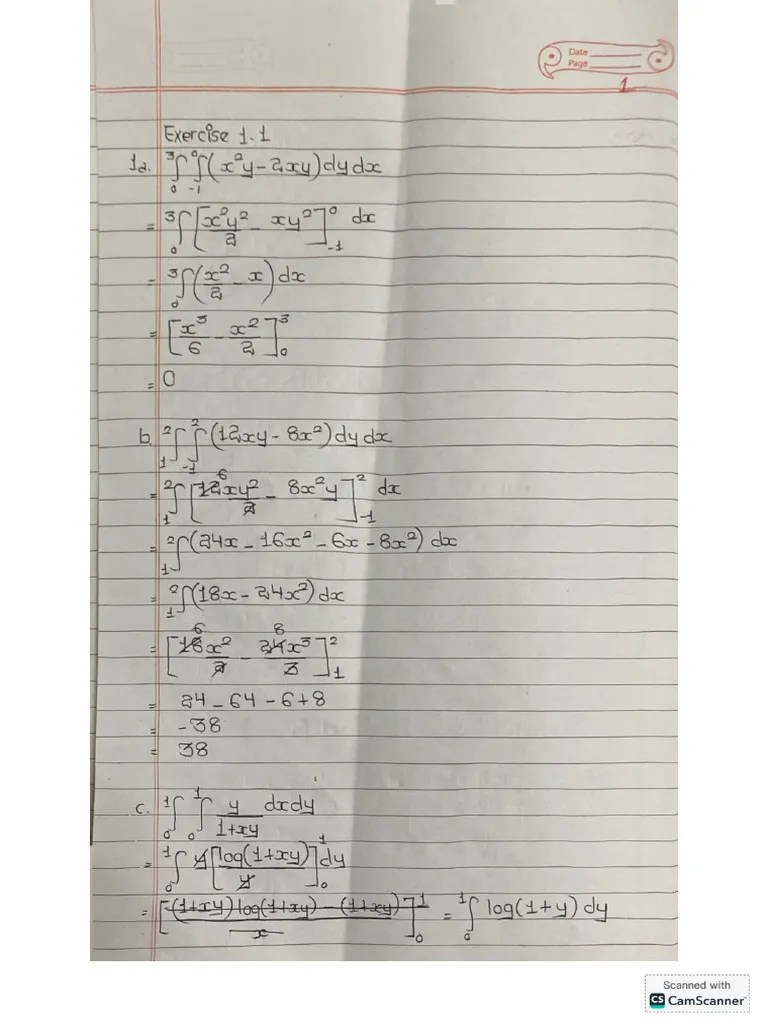 Date
Page
1
Exercise 1.1
1a. ³∫₀ ⁰∫₋₁ (x²y - 2xy) dy dx
= ³∫₀ [x²y²/2 - xy²]⁰₋₁ dx
= ³∫₀ (x²/2 - x) dx
= [x³/6 - x²/2]³₀
= 0
b. ²∫₁ ²∫₋₁ (12xy - 8x²) dy dx
= ²∫₁ [1̶2̶ 6 xy²/2̶ - 8x²y]²₋₁ dx
= ²∫₁ (24x - 16x² - 6x - 8x²) dx
= ²∫₁ (18x - 24x²) dx
= [1̶8̶ 6 x²/2̶ - 2̶4̶ 8 x³/3̶]²₁
= 24 - 64 - 6 + 8
= -38
= 38
c. ¹∫₀ ¹∫₀ y/(1+xy) dx dy
= ¹∫₀ y̶ [log(1+xy)/y̶]¹₀ dy
= [(1+xy) log(1+xy) - (1+xy)/x]¹₀ = ¹∫₀ log(1+y) dy
Scanned with
CS CamScanner